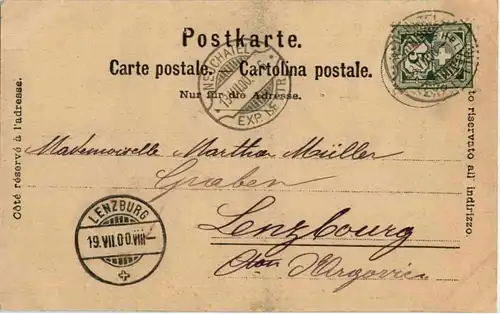 Postkarte.
Carte postale. Cartolina postale.
Nur für die Adresse.
Côté réservé à l'adresse.
to riservato all' indirizzo.
NEUCHATEL
19.VII.00
EXP. LETTR.
5
Mademoiselle Martha Müller
Graben
Lenzbourg
Argovie
LENZBURG
19.VII.00.VIII—